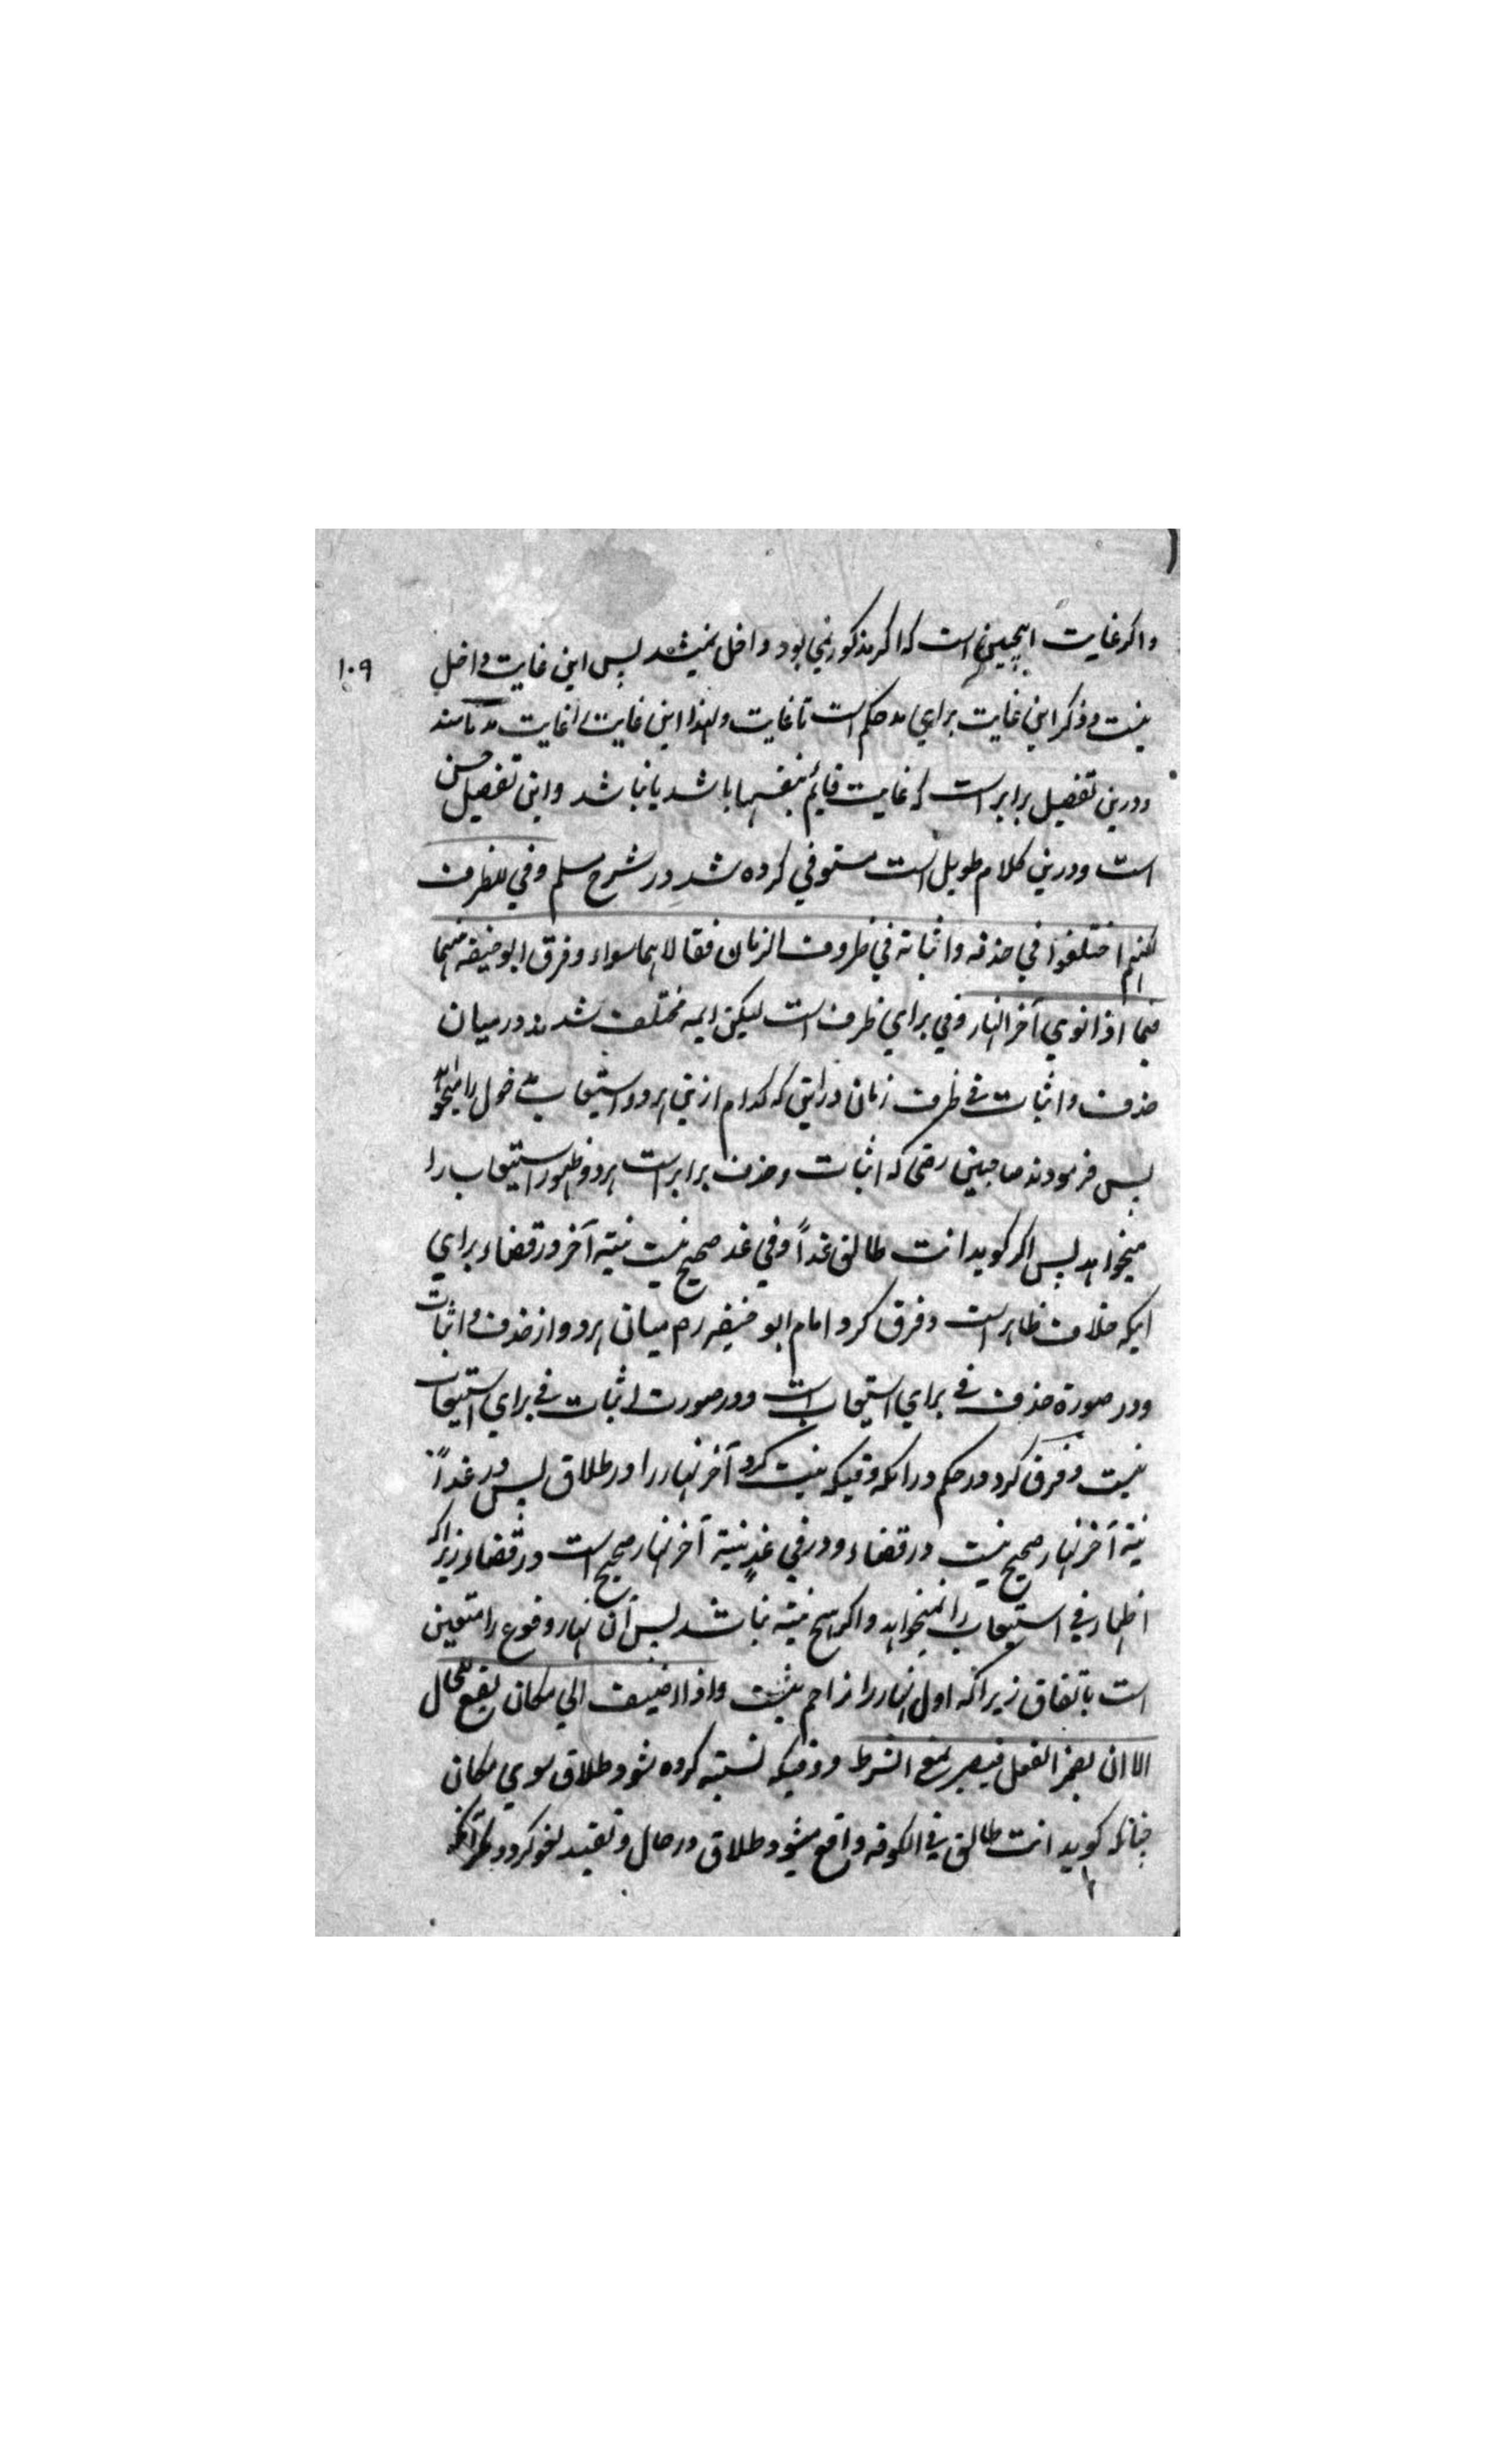 واکر غایت اینچنین است که اکر مذکور نمی بود داخل نمیشد پس این غایت داخل
۱۰۹
نیست و ذکر این غایت برای مد حکم است تا غایت ولهذا این غایت را غایت مد نامند
ودرین تفصیل برابر است که غایت قایم بنفسها باشد یا نباشد واین تفصیل حسن
است ودرین کلام طویل است مستوفی کرده شد در شرح مسلم وفي للظرف
لکنهم اختلفوا في حذفه واثباته في ظروف الزمان فقالا هما سواء وفرق ابو حنیفه بینهما
فیما اذا نوی آخر النهار وفی برای ظرف است لیکن ایمه مختلف شدند در میان
حذف واثبات في ظرف زمان در این که کدام ازین هر دو استیعاب مدخول را میخواهد
پس فرمودند صاحبین رض که اثبات و حذف برابر است هر دو ظهور استیعاب را
میخواهد پس اکر کوید انت طالق غداً وفي غد صحیح نیست نیته آخر در قضاء برای
اینکه خلاف ظاهر است وفرق کرد امام ابو حنیفه رح میان هر دو از حذف و اثبات
ودر صورة حذف في برای استیعاب است ودر صورت اثبات في برای استیعاب
نیست وفرق کرد در حکم درانکه وقتیکه نیت کرد آخر نهار را در طلاق پس در غداً
نیة آخر نهار صحیح نیست در قضاء ودر في غدٍ نیة آخر النهار صحیح است در قضاء زیراکه
اظهار في استیعاب را نمیخواهد واکر هیچ نیته نباشد پس آن نهار وقوع را متعین
است باتفاق زیرا که اول النهار را مزاحم نیست واذا اضیف الي مکان یقع للحال
الا ان یضمر الفعل فیصیر بمعنی الشرط ووقتیکه نسبته کرده شود طلاق سوی مکان
چنانکه کوید انت طالق في الکوفه واقع میشود طلاق در حال وتقید لغو کردد مکر آنکه